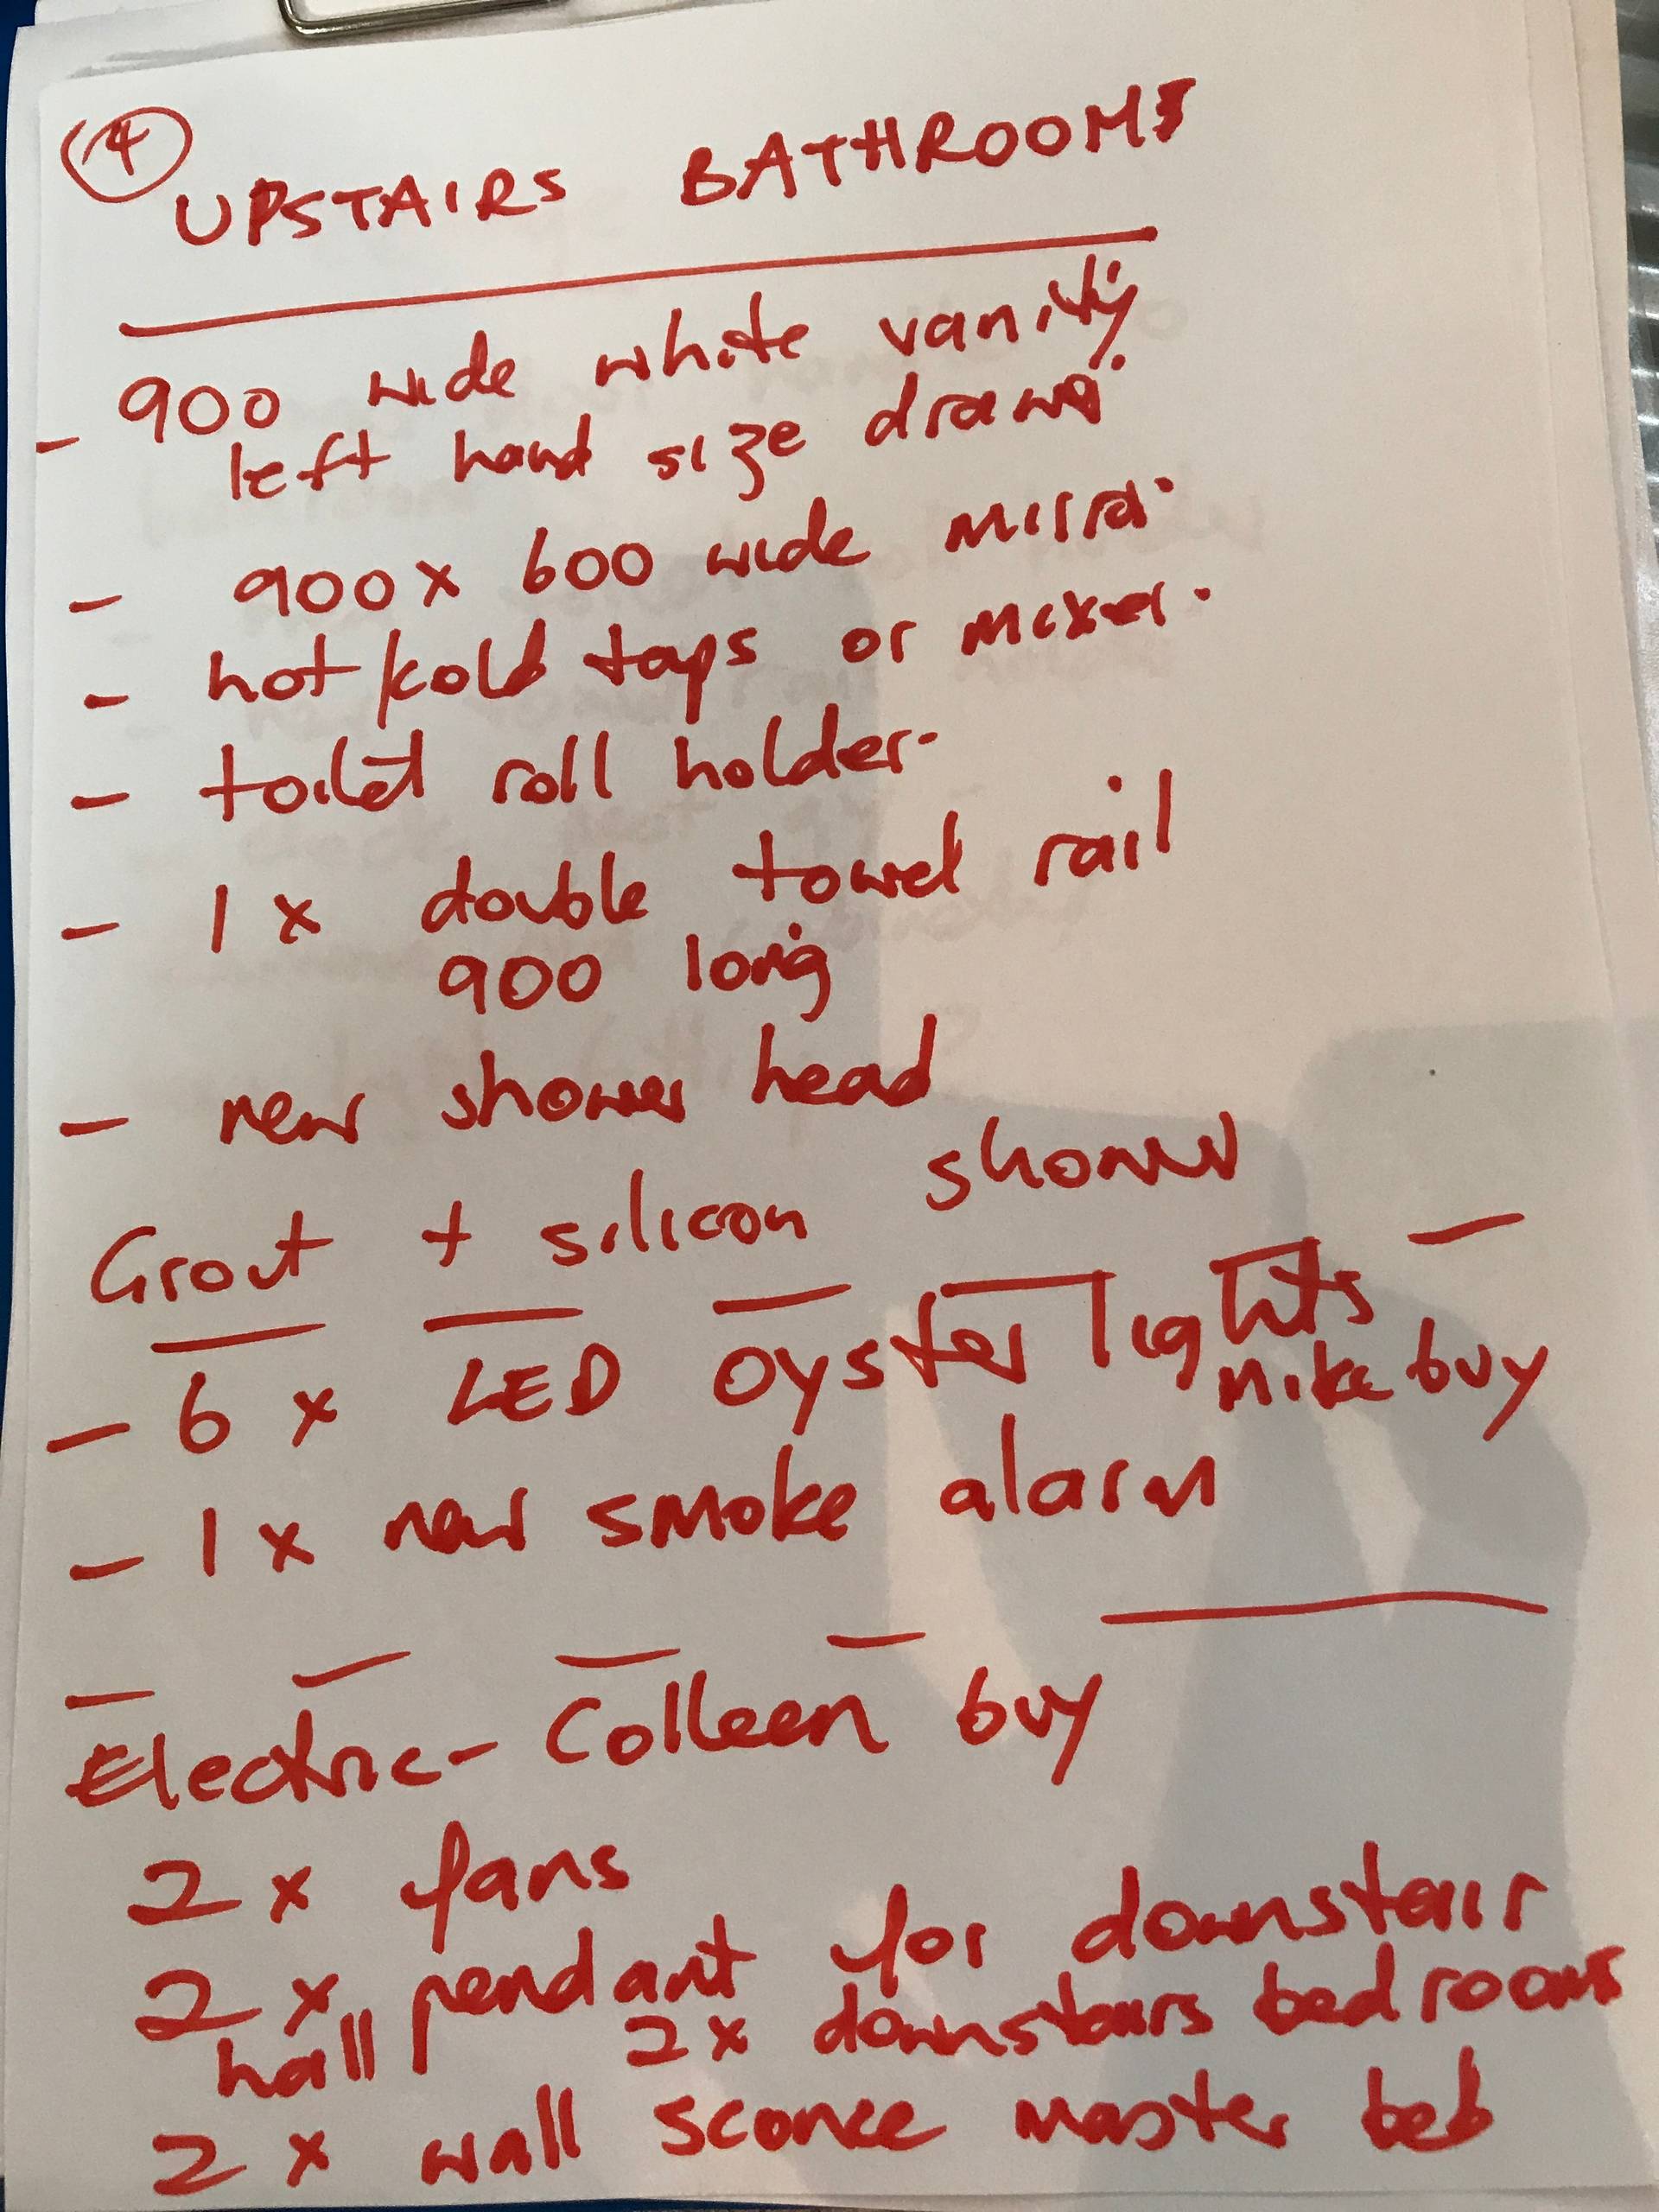 4
UPSTAIRS BATHROOMS
- 900 wide white vanity
left hand size draws
- 900 x 600 wide mirror
- hot/cold taps or mixer.
- toilet roll holder
- 1 x double towel rail
900 long
- new shower head
Grout + silicon shower
- 6 x LED oyster lights
Mike buy
- 1 x new smoke alarm
Electric - Colleen buy
2 x fans
2 x pendant for downstair
hall 2x downstairs bedrooms
2 x wall sconce master bed